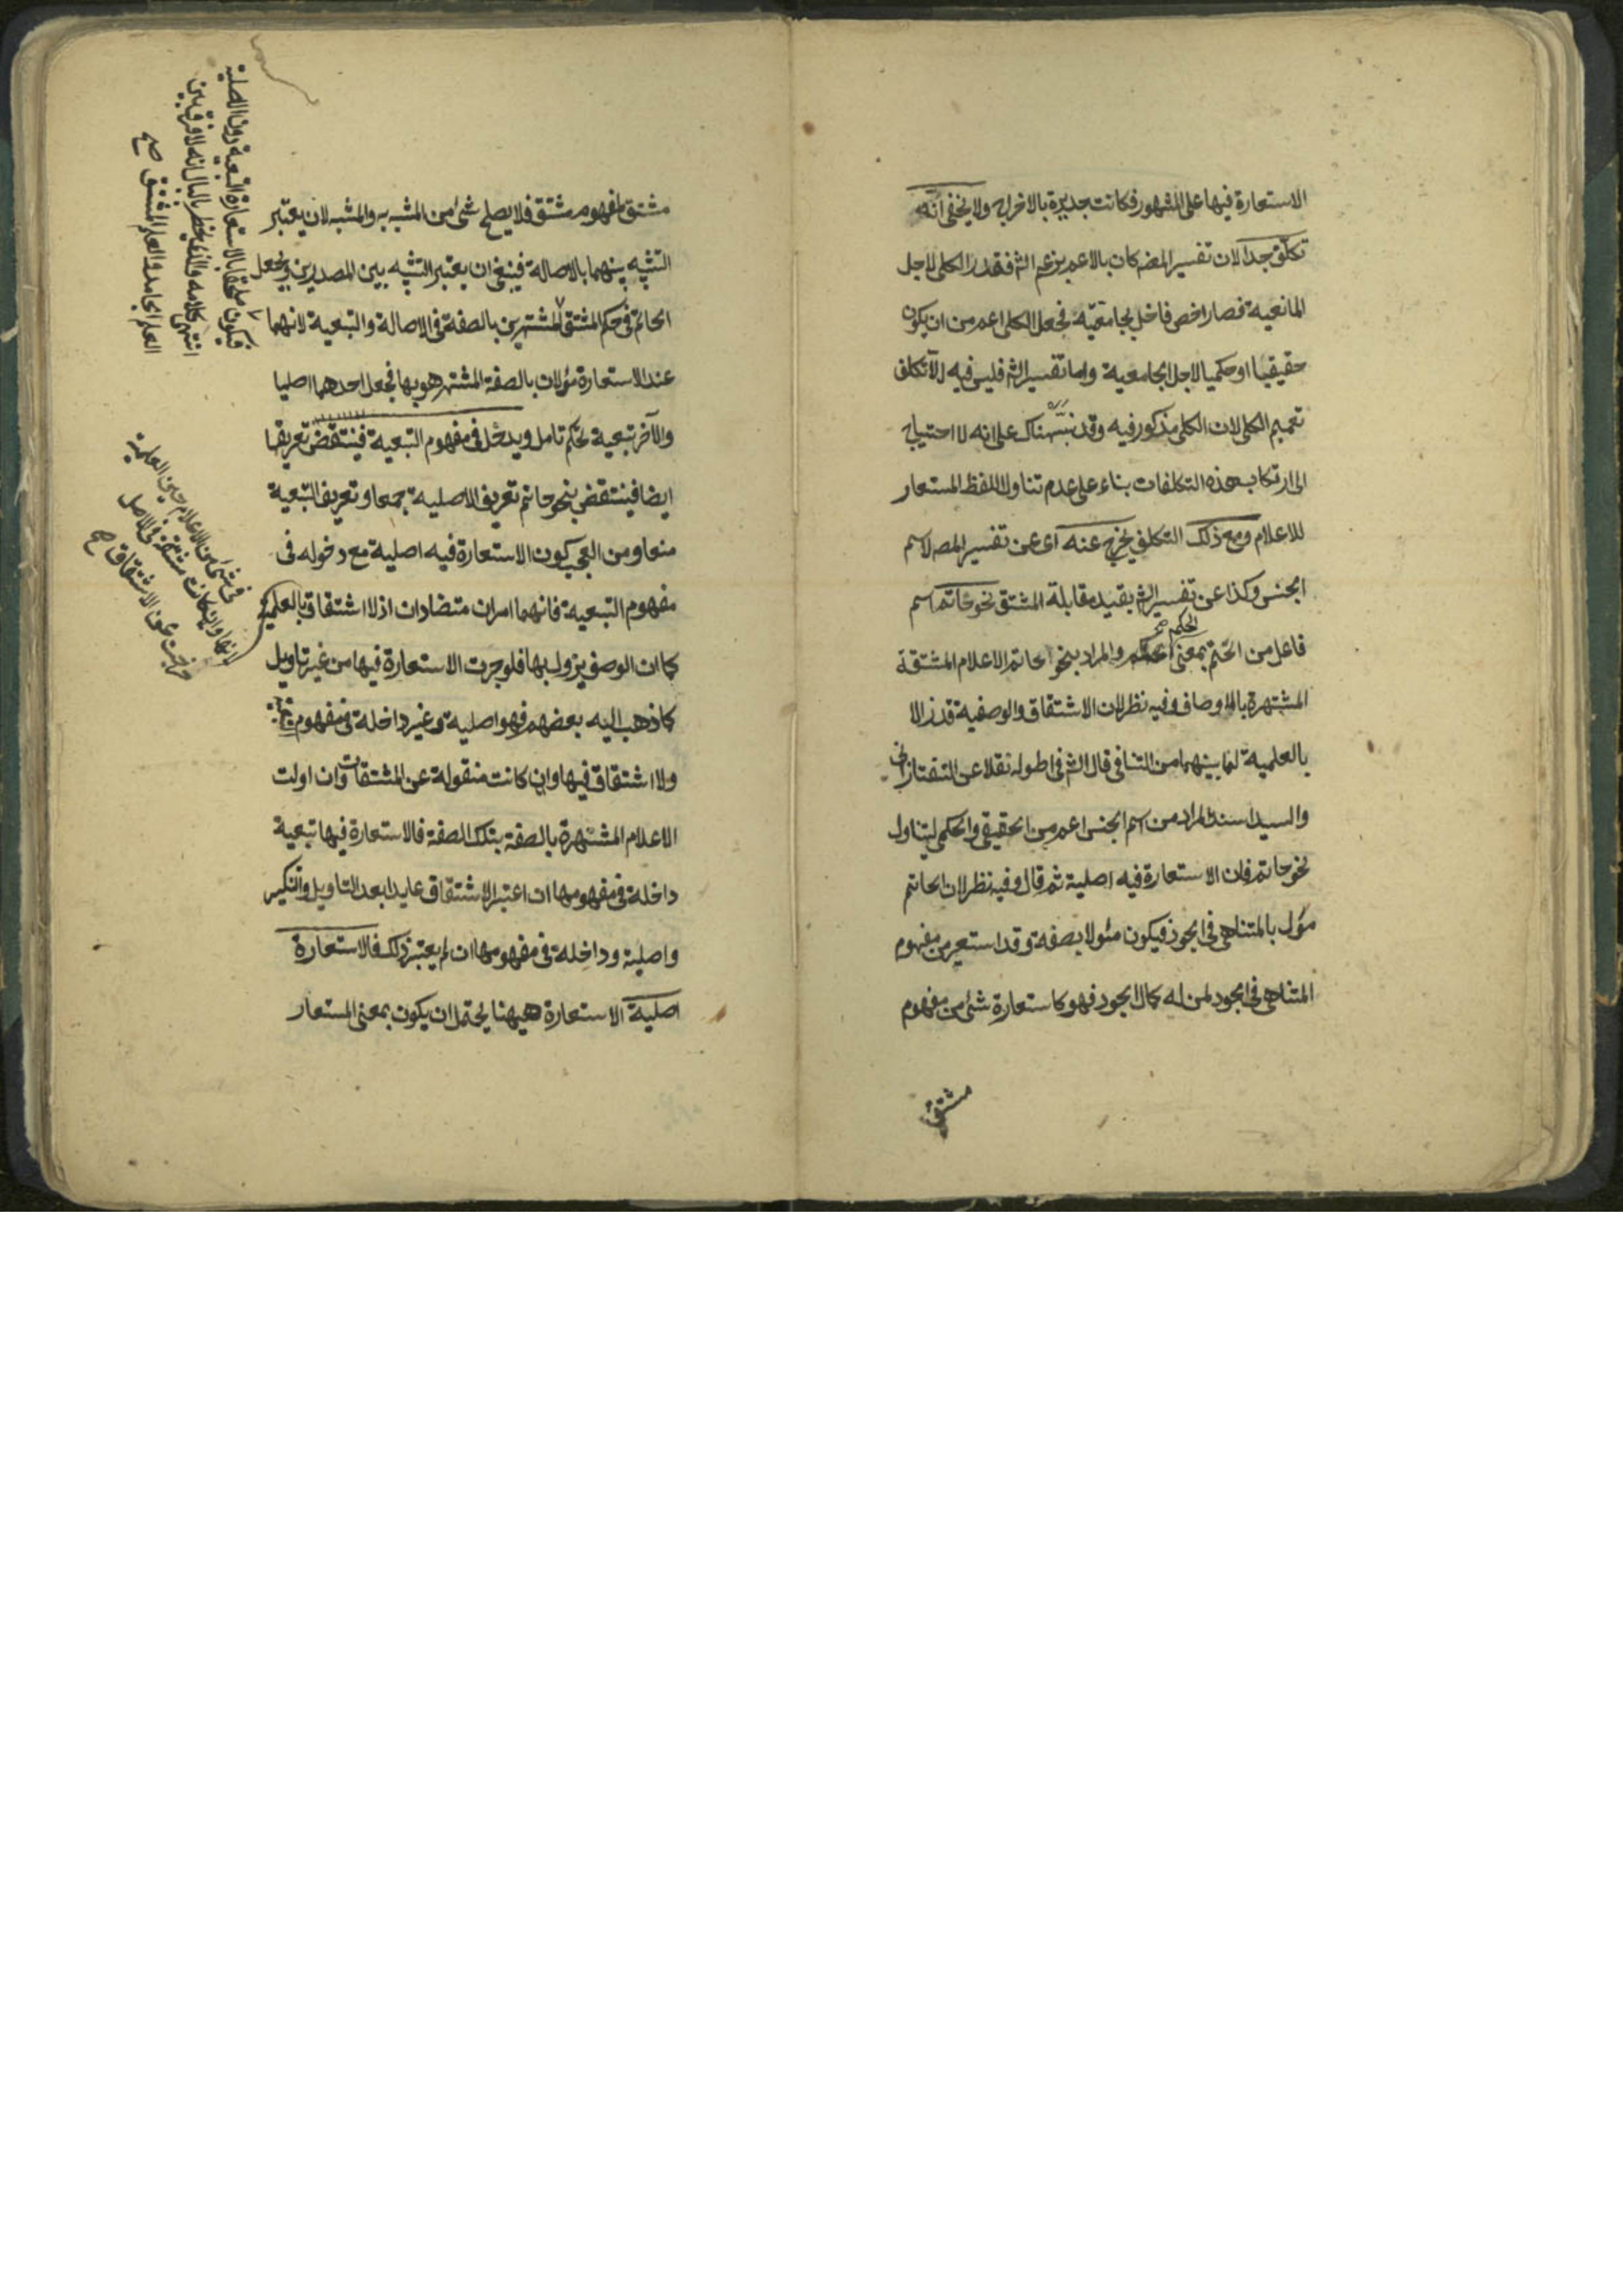 الاستعارة فيها على المشهور فكانت جديرة بالاخراج ولا يخفى انه
تكلف جدا لان تفسير المص كان بالاعم بزعم الش فقدر الكلى لاجل
المانعية فصار اخص فاخل بجامعيته فجعل الكلى اعم من ان يكون
حقيقيا او حكميا لاجل الجامعية واما تفسير الش فليس فيه الا تكلف
تعميم الكلى لان الكلى مذكور فيه وقد نبهناك على انه لا احتياج
الى ارتكاب هذه التكلفات بناء على عدم تناول اللفظ المستعار
للاعلام ومع ذلك التكلف يخرج عنه اى عن تفسير المص لاسم
الجنس وكذا عن تفسير الش بقيد مقابلة المشتق نحو حاتم اسم
فاعل من الحتم بمعنى الحكم صح والمراد بنحو حاتم الاعلام المشتقة
المشتهرة بالاوصاف وفيه نظر لان الاشتقاق والوصفية قد زالا
بالعلمية لما بينهما من التنافى قال الش فى اطوله نقلا عن التفتازانى
والسيد السند المراد من اسم الجنس اعم من الحقيقى والحكمى ليتناول
نحو حاتم فان الاستعارة فيه اصلية ثم قال وفيه نظر لان الحاتم
مؤل بالمتناهى فى الجود فيكون مئولا بصفة وقد استعير من مفهوم
المتناهى فى الجود لمن له كمال الجود فهو كاستعارة شئ من مفهوم
مشتق
مشتق لمفهوم مشتق فلا يصلح شئ من المشبه به والمشبه لان يعتبر
التشبيه بينهما بالاصالة فينبغى ان يعتبر التشبيه بين المصدرين ويجعل
الحاتم فى حكم المشتق المشتهرين بالصفة فى الاصالة والتبعية لانهما
عند الاستعارة مؤلان بالصفة المشتهر هو بها فجعل احدهما اصليا
والآخر تبعية تحكم تامل ويدخل فى مفهوم التبعية فينتقض تعريفها
ايضا فينتقض بنحو حاتم تعريف الاصلية جمعا وتعريف التبعية
منعا ومن العجب كون الاستعارة فيه اصلية مع دخوله فى
مفهوم التبعية فانهما امران متضادان اذ لا اشتقاق بالعلمية
كما ان الوصف يزول بها فلو جرت الاستعارة فيها من غير تاويل
كما ذهب اليه بعضهم فهو اصلية وغير داخلة فى مفهوم
ولا اشتقاق فيها وان كانت منقولة عن المشتقات وان اولت
الاعلام المشتهرة بالصفة بتلك الصفة فالاستعارة فيها تبعية
داخلة فى مفهومها ان اعتبر الاشتقاق عايدا بعد التاويل والتنكير
واصلية وداخلة فى مفهومها ان لم يعتبر ذلك فالاستعارة
اصلية الاستعارة ههنا يحتمل ان يكون بمعنى المستعار
فيكون ملحقا بالاستعارة التبعية دون الاصلية
انتهى كلامه والذى يخطر بالبال انه لا فرق بين
العلم الجامد والعلم المشتق صح
فى شئ من الاعلام حين العلمية
وان كانت مشتقة فى الاصل
خرجت عن الاشتقاق صح